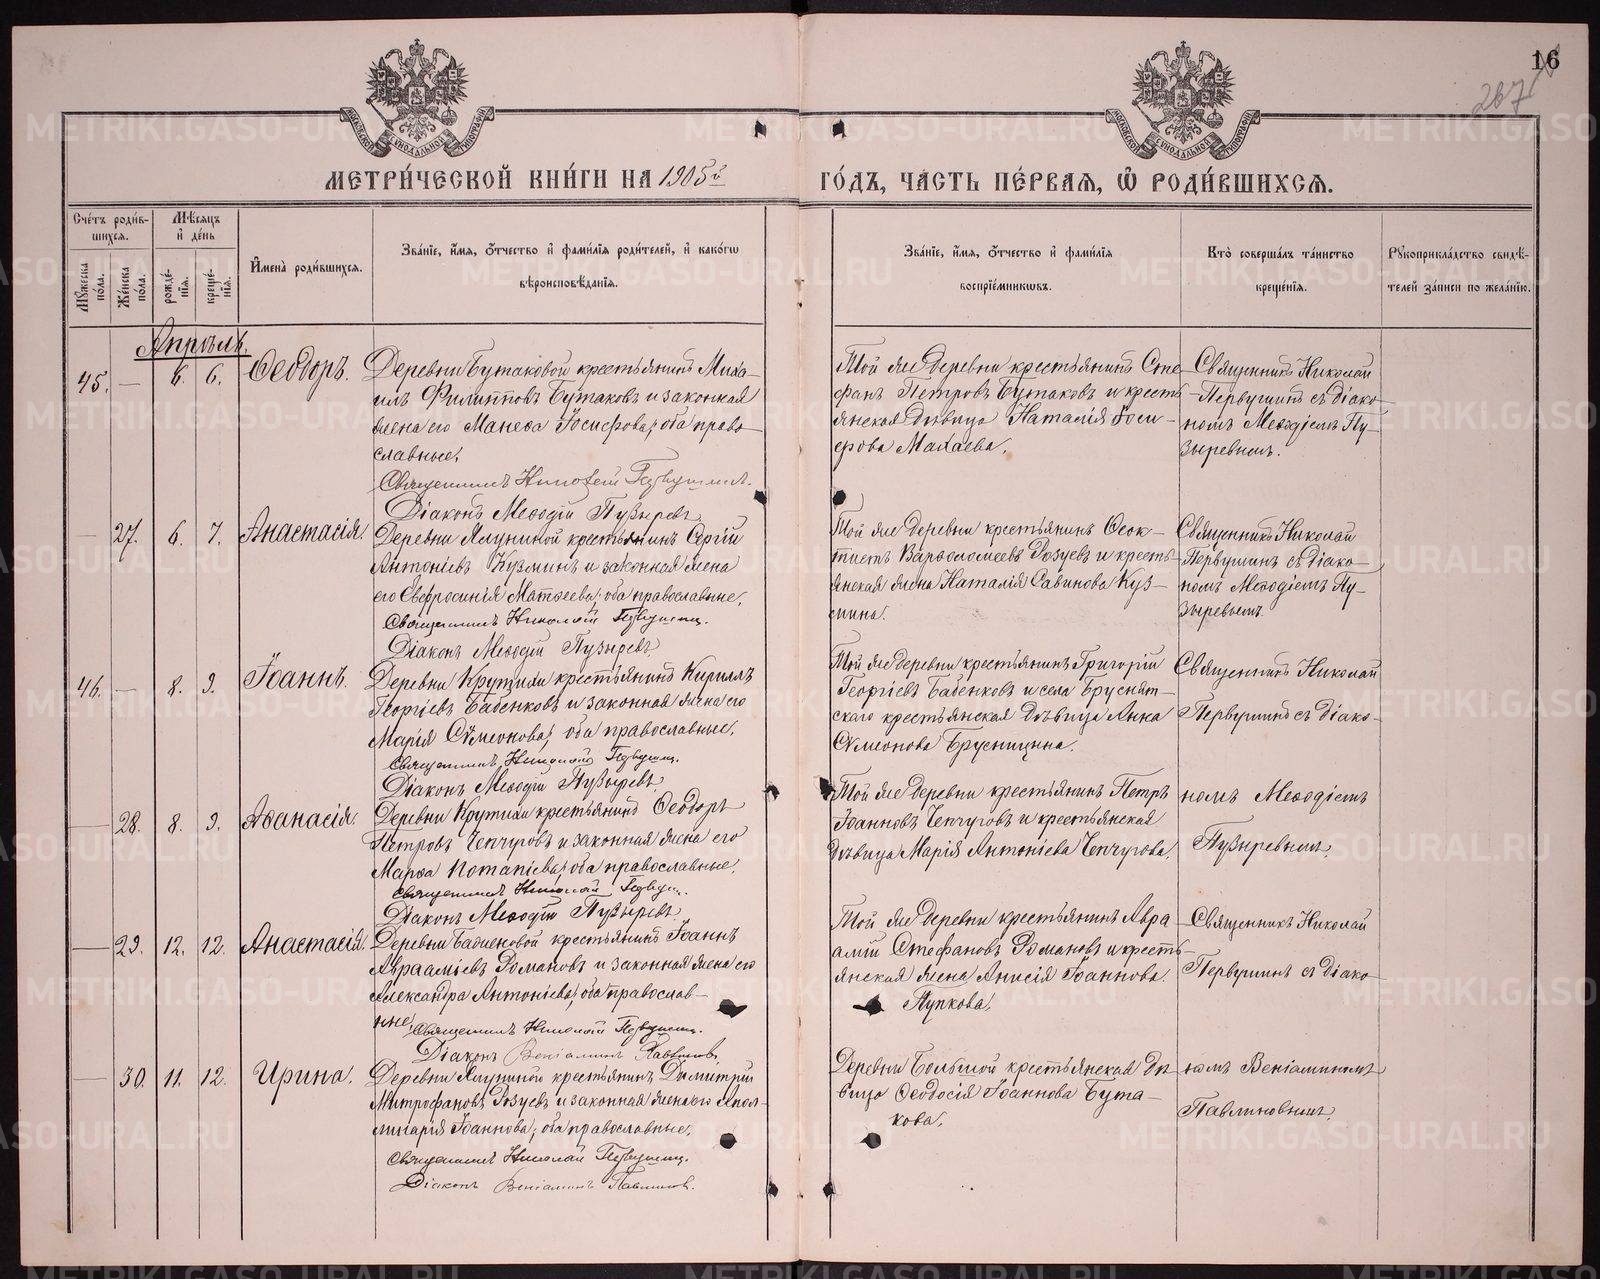 16
267
МЕТРИ́ЧЕСКОЙ КНИ́ГИ НА 1905й ГО́ДЪ, ЧА́СТЬ ПЕ́РВАЯ, Ѽ РОДИ́ВШИХСЯ.
Сче́тъ роди́в-
шихся.
Мѣ́сяцъ
и҆ де́нь
Му́жеска по́ла.
Же́нска по́ла.
рожде́-
нїя.
креще́-
нїя.
И҆мена̀ роди́вшихся.
Зва́нїе, и҆́мя, ѻ҆́тчество и҆ фами́лїя роди́телей, и҆ како́гѡ
вѣроисповѣ́данїя.
Зва́нїе, и҆́мя, ѻ҆́тчество и҆ фами́лїя
воспрїе́мникѡвъ.
Кто̀ соверша́лъ та́инство
креще́нїя.
Рꙋкоприкла́дство свидѣ́-
телей за́писи по жела́нїю.
Апрѣль.
45. — 6. 6. Ѳеодоръ.
Деревни Бутаковой крестьянинъ Миха-
илъ Филипповъ Бутаковъ и законная
жена его Манеѳа Іосифова; оба право-
славные.
Священникъ Николай Первушинъ.
Діаконъ Меѳодій Пузыревъ.
Той же деревни крестьянинъ Сте-
фанъ Петровъ Бутаковъ и кресть-
янская дѣвица Наталія Іоси-
фова Малаева.
Священникъ Николай
Первушинъ съ діако-
номъ Меѳодіемъ Пу-
зыревымъ.
— 27. 6. 7. Анастасія.
Деревни Ялуниной крестьянинъ Сергій
Антоніевъ Кузминъ и законная жена
его Евфросинія Матѳеева; оба православные.
Священникъ Николай Первушинъ.
Діаконъ Меѳодій Пузыревъ.
Той же деревни крестьянинъ Ѳеок-
тистъ Варѳоломеевъ Розуевъ и кресть-
янская жена Наталія Савинова Куз-
мина.
Священникъ Николай
Первушинъ съ діако-
номъ Меѳодіемъ Пу-
зыревымъ.
46. — 8. 9. Іоаннъ.
Деревни Крутихи крестьянинъ Кириллъ
Георгіевъ Бабенковъ и законная жена его
Марія Сѵмеонова; оба православные.
Священникъ Николай Первушинъ.
Діаконъ Меѳодій Пузыревъ.
Той же деревни крестьянинъ Григорій
Георгіевъ Бабенковъ и села Бруснят-
скаго крестьянская дѣвица Анна
Сѵмеонова Брусницына.
Священникъ Николай
Первушинъ съ діако-
— 28. 8. 9. Аѳанасія.
Деревни Крутихи крестьянинъ Ѳеодоръ
Петровъ Чепчуговъ и законная жена его
Марѳа Потапіева; оба православные.
Священникъ Николай Первушинъ.
Діаконъ Меѳодій Пузыревъ.
Той же деревни крестьянинъ Петръ
Іоанновъ Чепчуговъ и крестьянская
дѣвица Марія Антоніева Чепчугова.
номъ Меѳодіемъ
Пузыревымъ.
— 29. 12. 12. Анастасія.
крестьянинъ Іоаннъ
Авраамієвъ Романовъ и законная жена его
Александра Антоніева; оба православ-
ные. Священникъ Николай Первушинъ.
Діаконъ Веніаминъ Павлиновъ.
Той же деревни крестьянинъ Авра-
амій Стефановъ Романовъ и кресть-
янская жена Анисія Іоаннова
Пупкова.
Священникъ Николай
Первушинъ съ діако-
— 30. 11. 12. Ирина.
Деревни Ялуниной крестьянинъ Димитрій
Митрофановъ Розуевъ и законная жена его Апол-
линарія Іоаннова; оба православные.
Священникъ Николай Первушинъ.
Діаконъ Веніаминъ Павлиновъ.
Деревни Большой крестьянская дѣ-
вица Ѳеодосія Іоаннова Бута-
кова.
номъ Веніаминомъ
Павлиновымъ.
METRIKI.GASO-URAL.RU